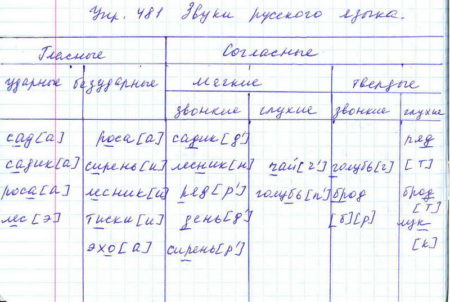 Упр. 481 Звуки русского языка.
Гласные Согласные
ударные безударные мягкие твердые
звонкие глухие звонкие глухие
сад [а] роса [а] садик [д'] ряд
садик [а] сирень [и] лесник [н] чай [ч'] голубь [г] [т]
роса [а] лесник [и] ряд [р'] голубь [п'] брод брод
лес [э] тиски [и] день [д'] [б] [р] [т]
лук
эхо [а] сирень [р'] [к]